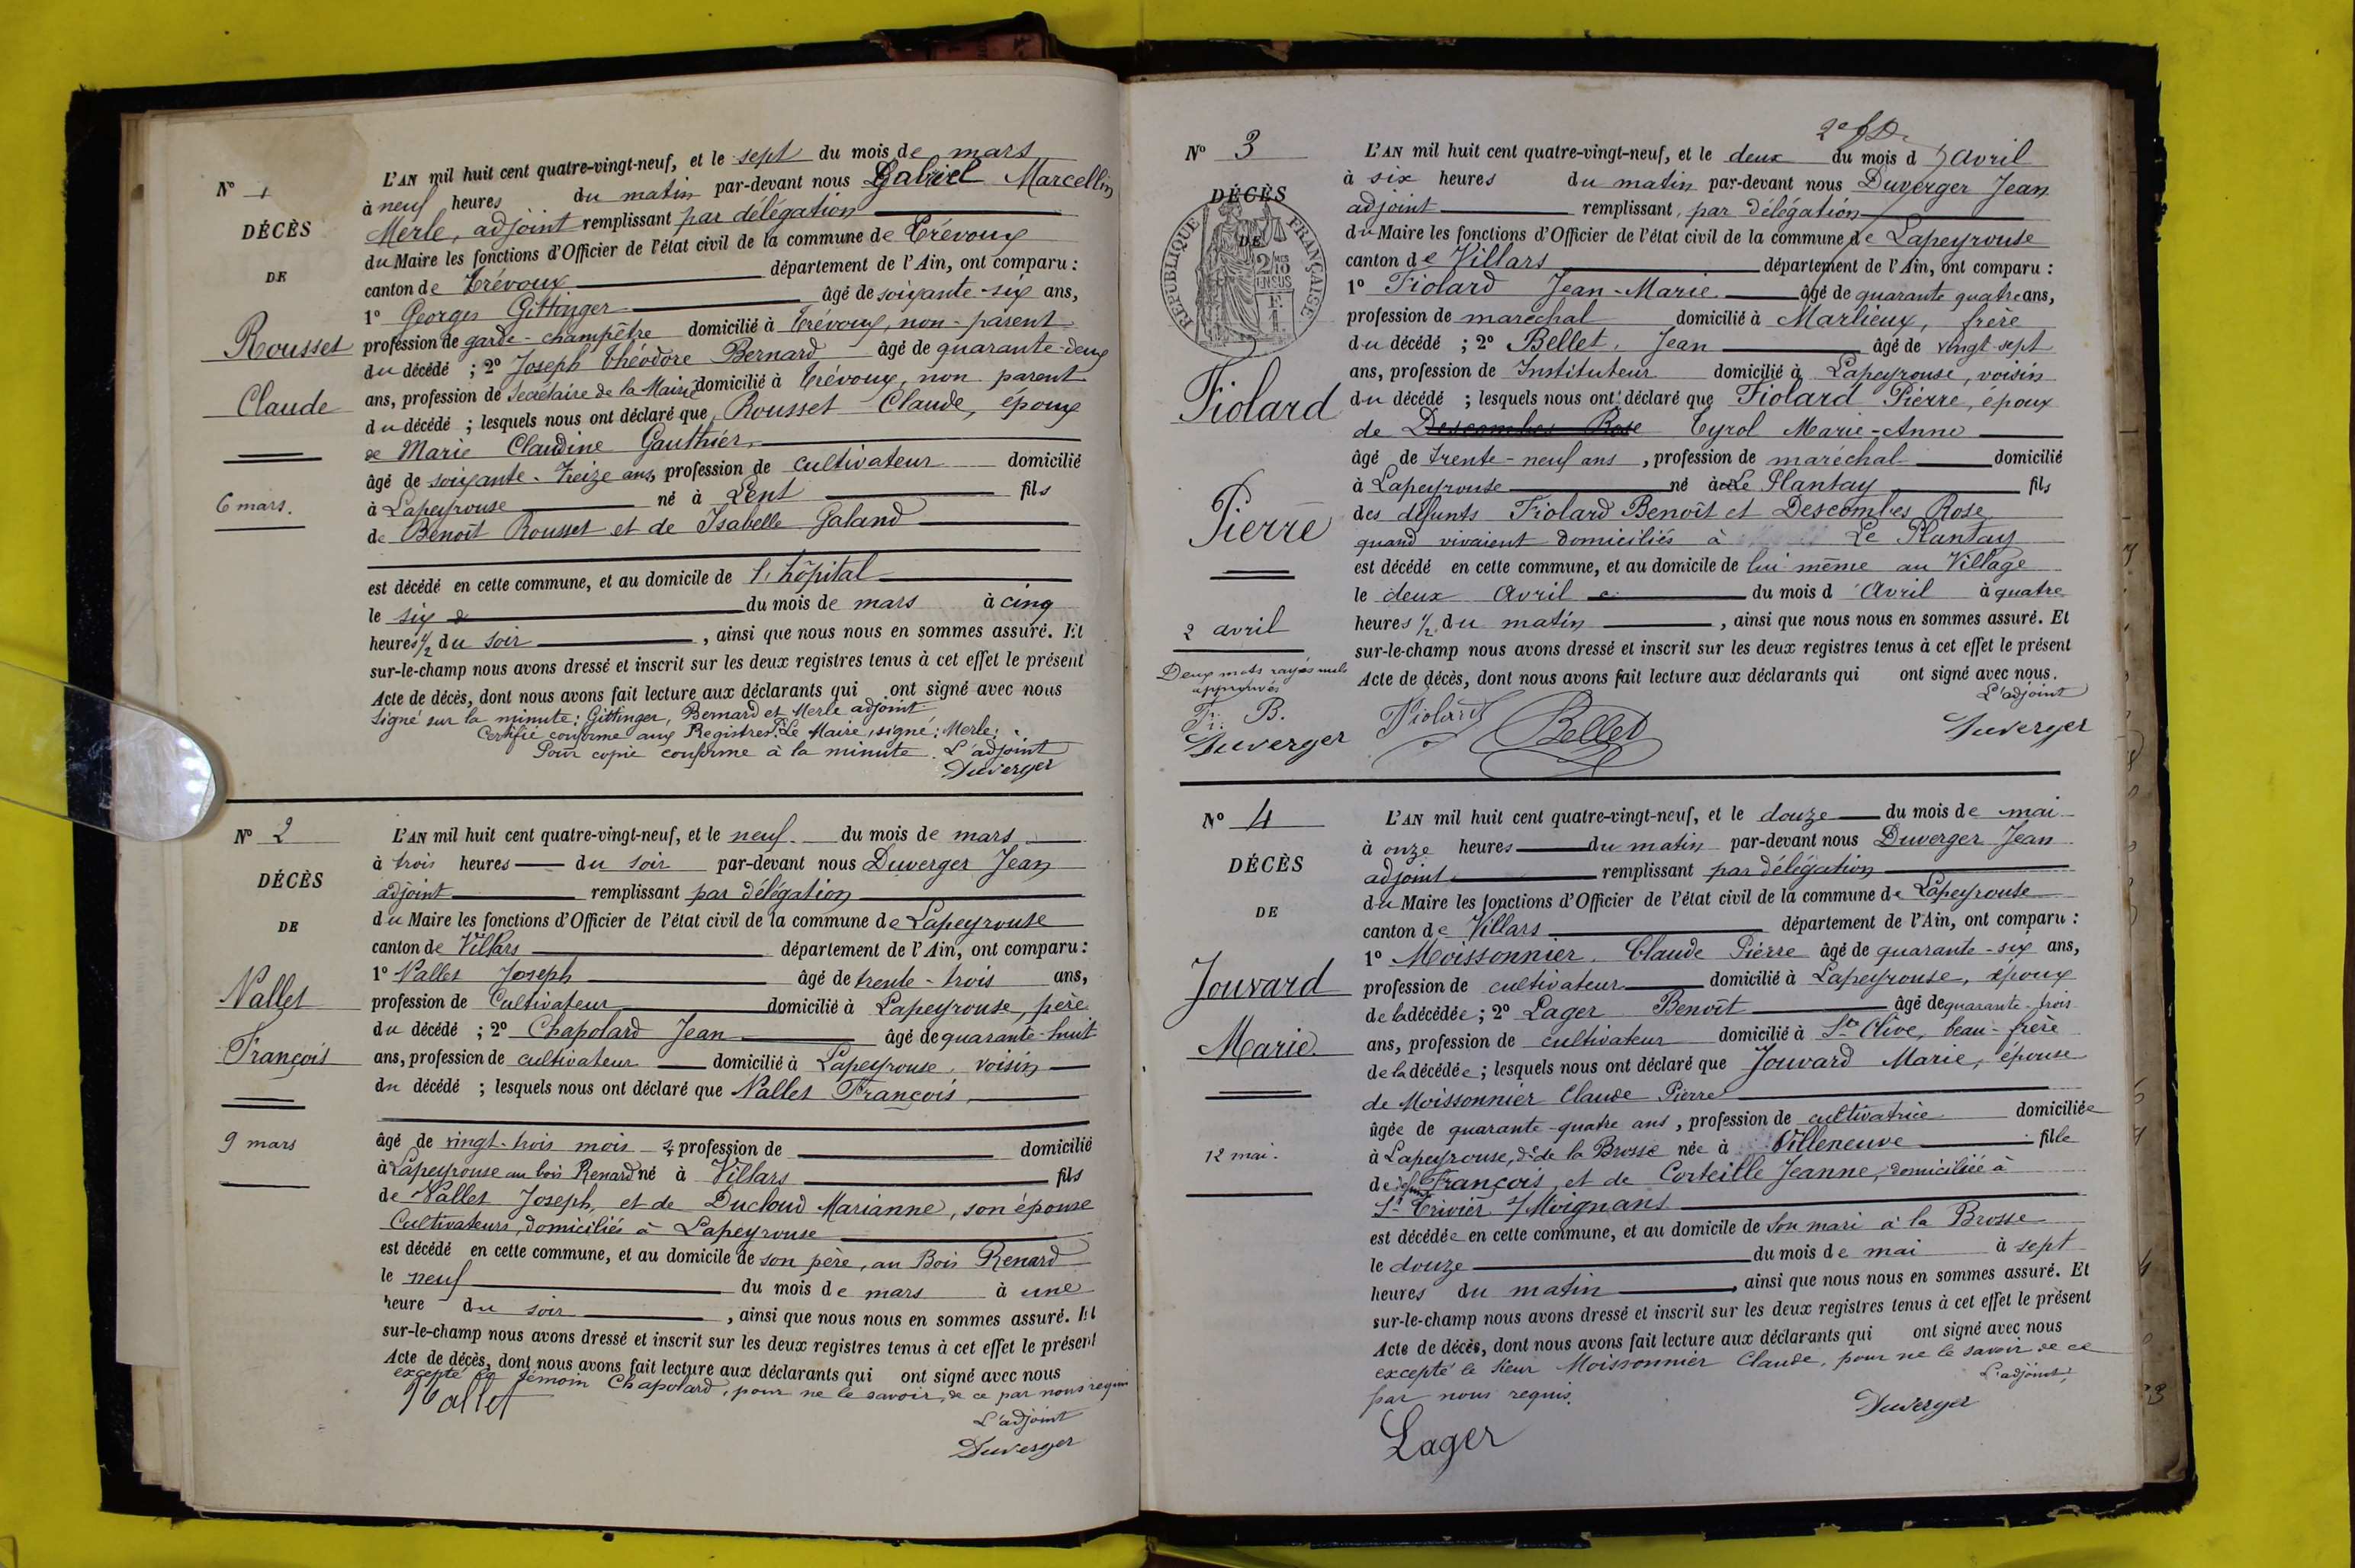 N° 1
DÉCÈS
DE
Rousset
Claude
6 mars.
L'AN mil huit cent quatre-vingt-neuf, et le sept du mois de mars
à neuf heures du matin par-devant nous Gabriel Marcellin
Merle, adjoint remplissant par délégation
du Maire les fonctions d'Officier de l'état civil de la commune de Trévoux
canton de Trévoux département de l'Ain, ont comparu :
1° Georges Gittinger âgé de soixante-six ans,
profession de garde-champêtre domicilié à Trévoux, non-parent
du décédé ; 2° Joseph Théodore Bernard âgé de quarante-deux
ans, profession de Secrétaire de la Mairie domicilié à Trévoux, non parent
du décédé ; lesquels nous ont déclaré que Rousset Claude, époux
de Marie Claudine Gauthier,
âgé de soixante-treize ans, profession de cultivateur domicilié
à Lapeyrouse né à Lent fils
de Benoît Rousset et de Isabelle Galand
est décédé en cette commune, et au domicile de l'hôpital
le six du mois de mars à cinq
heures 1/2 du soir , ainsi que nous nous en sommes assuré. Et
sur-le-champ nous avons dressé et inscrit sur les deux registres tenus à cet effet le présent
Acte de décès, dont nous avons fait lecture aux déclarants qui ont signé avec nous
Signé sur la minute : Gittinger, Bernard et Merle adjoint
Certifié conforme aux Registres. Le Maire, signé : Merle.
Pour copie conforme à la minute. L'adjoint
Duverger
N° 2
DÉCÈS
DE
Nallet
François
9 mars
L'AN mil huit cent quatre-vingt-neuf, et le neuf du mois de mars
à trois heures du soir par-devant nous Duverger Jean
adjoint remplissant par délégation
du Maire les fonctions d'Officier de l'état civil de la commune de Lapeyrouse
canton de Villars département de l'Ain, ont comparu :
1° Nallet Joseph âgé de trente-trois ans,
profession de Cultivateur domicilié à Lapeyrouse, père
du décédé ; 2° Chapolard Jean âgé de quarante-huit
ans, profession de cultivateur domicilié à Lapeyrouse, voisin
du décédé ; lesquels nous ont déclaré que Nallet François,
âgé de vingt-trois mois profession de domicilié
à Lapeyrouse au bois Renard né à Villars fils
de Nallet Joseph, et de Ducloud Marianne, son épouse
Cultivateurs, domiciliés à Lapeyrouse
est décédé en cette commune, et au domicile de son père, au Bois Renard
le neuf du mois de mars à une
heure du soir , ainsi que nous nous en sommes assuré. Et
sur-le-champ nous avons dressé et inscrit sur les deux registres tenus à cet effet le présent
Acte de décès, dont nous avons fait lecture aux déclarants qui ont signé avec nous
excepté le témoin Chapolard, pour ne le savoir, de ce par nous requis
Nallet
L'adjoint
Duverger
N° 3
DÉCÈS
DE
RÉPUBLIQUE FRANÇAISE
2/10
EN SUS
Fiolard
Pierre
2 avril
Deux mots rayés nuls
approuvés
Fi. B.
Duverger
L'AN mil huit cent quatre-vingt-neuf, et le deux du mois d'Avril
à six heures du matin par-devant nous Duverger Jean
adjoint remplissant, par délégation
du Maire les fonctions d'Officier de l'état civil de la commune de Lapeyrouse
canton de Villars département de l'Ain, ont comparu :
1° Fiolard Jean-Marie âgé de quarante quatre ans,
profession de maréchal domicilié à Marlieux, frère
du décédé ; 2° Bellet, Jean âgé de vingt-sept
ans, profession de Instituteur domicilié à Lapeyrouse, voisin
du décédé ; lesquels nous ont déclaré que Fiolard Pierre, époux
de Descombes Rose Tyrol Marie-Anne
âgé de trente-neuf ans , profession de maréchal domicilié
à Lapeyrouse né à Le Plantay fils
des défunts Fiolard Benoît et Descombes Rose
quand vivaient domiciliés à Le Plantay
est décédé en cette commune, et au domicile de lui même au Village
le deux Avril du mois d'Avril à quatre
heures 1/2 du matin , ainsi que nous nous en sommes assuré. Et
sur-le-champ nous avons dressé et inscrit sur les deux registres tenus à cet effet le présent
Acte de décès, dont nous avons fait lecture aux déclarants qui ont signé avec nous.
L'adjoint
Fiolard Bellet Duverger
N° 4
DÉCÈS
DE
Jouvard
Marie
12 mai.
L'AN mil huit cent quatre-vingt-neuf, et le douze du mois de mai
à onze heures du matin par-devant nous Duverger Jean
adjoint remplissant par délégation
du Maire les fonctions d'Officier de l'état civil de la commune de Lapeyrouse
canton de Villars département de l'Ain, ont comparu :
1° Moissonnier Claude Pierre âgé de quarante-six ans,
profession de cultivateur domicilié à Lapeyrouse, époux
de la décédée ; 2° Lager Benoît âgé de quarante-trois
ans, profession de cultivateur domicilié à Ste Olive, beau-frère
de la décédée ; lesquels nous ont déclaré que Jouvard Marie, épouse
de Moissonnier Claude Pierre
âgée de quarante-quatre ans , profession de cultivatrice domiciliée
à Lapeyrouse, de la Brosse née à Villeneuve fille
de défunt François, et de Corteille Jeanne, domiciliée à
St Trivier s/Moignans
est décédée en cette commune, et au domicile de son mari à la Brosse
le douze du mois de mai à sept
heures du matin , ainsi que nous nous en sommes assuré. Et
sur-le-champ nous avons dressé et inscrit sur les deux registres tenus à cet effet le présent
Acte de décès, dont nous avons fait lecture aux déclarants qui ont signé avec nous
excepté le sieur Moissonnier Claude, pour ne le savoir de ce
par nous requis.
L'adjoint,
Lager Duverger